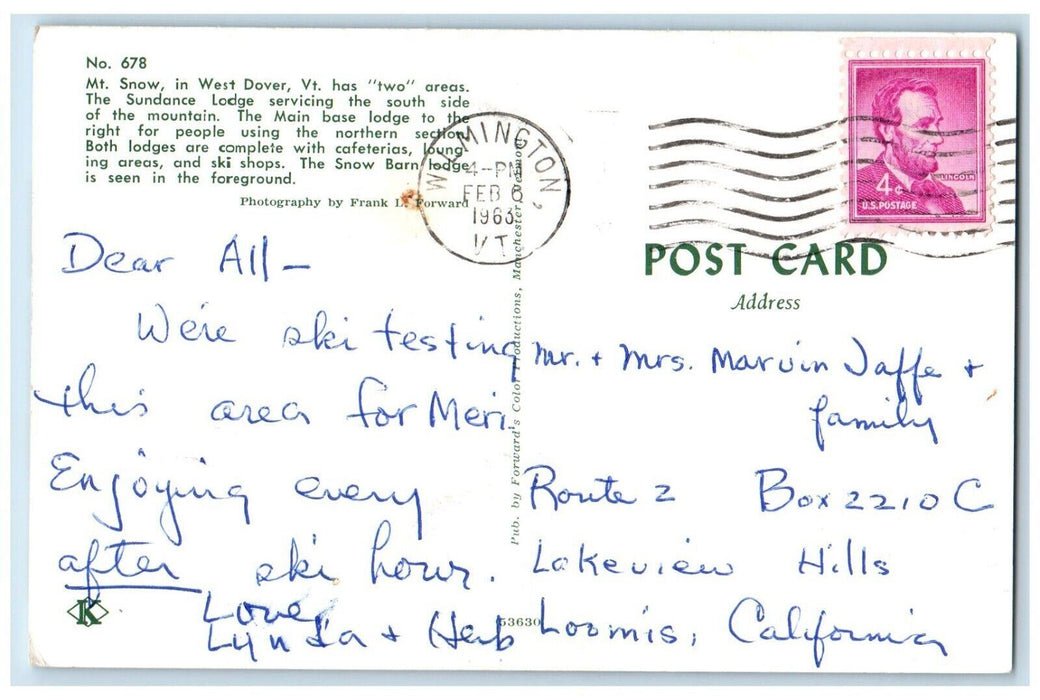 No. 678
Mt. Snow, in West Dover, Vt. has "two" areas.
The Sundance Lodge servicing the south side
of the mountain. The Main base lodge to the
right for people using the northern section.
Both lodges are complete with cafeterias, loung-
ing areas, and ski shops. The Snow Barn lodge
is seen in the foreground.
Photography by Frank L. Forward
WILMINGTON,
4-PM
FEB 6
1963
VT.
4¢
LINCOLN
U.S. POSTAGE
POST CARD
Address
Dear All -
We're ski testing
this area for Meri
Enjoying every
after ski hour.
Love,
Lynda + Herb
K
Pub. by Forward's Color Productions, Manchester, Vermont
53630
Mr. + Mrs. Marvin Jaffe +
family
Route 2 Box 2210 C
Lakeview Hills
Loomis, California